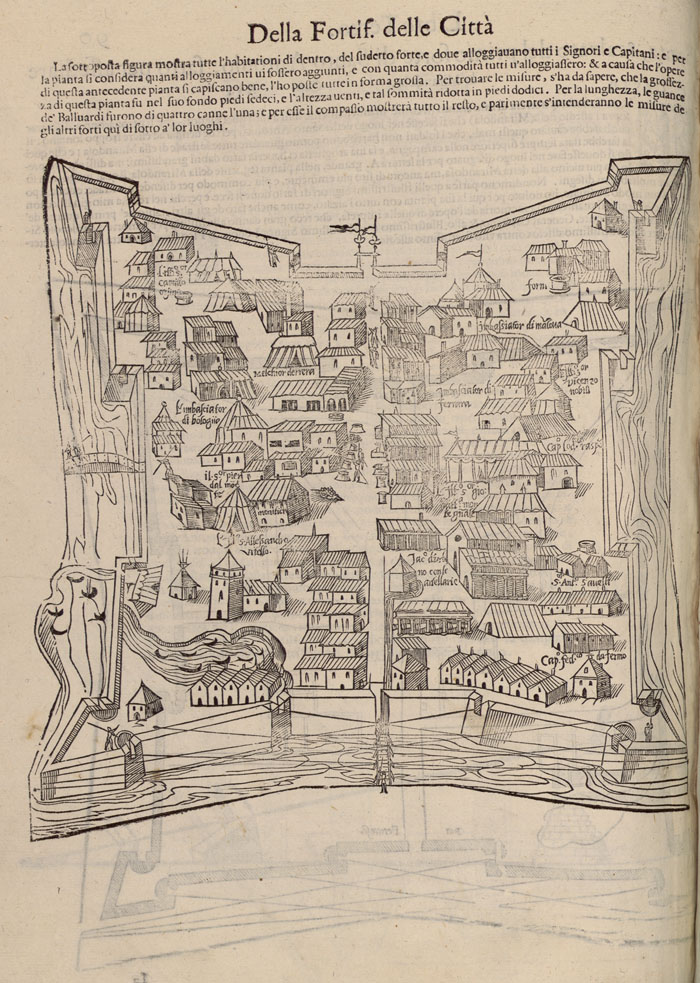 Della Fortif. delle Città
La sottoposta figura mostra tutte l'habitationi di dentro, del sudetto forte, e doue alloggiauano tutti i Signori e Capitani: e per
la pianta si considera quanti alloggiamenti ui fossero aggiunti, e con quanta commodità tutti u'alloggiassero: & a causa che l'opere
di questa antecedente pianta si capiscano bene, l'ho poste tutte in forma grossa. Per trouare le misure, s'ha da sapere, che la grossez-
za di questa pianta fu nel suo fondo piedi sedeci, e l'altezza uenti, e tal sommità ridotta in piedi dodici. Per la lunghezza, le guance
de' Balluardi furono di quattro canne l'una; e per esse il compasso mostrerà tutto il resto, e parimente s'intenderanno le misure de
gli altri forti qui di sotto a' lor luoghi.
camillo
forni
Imbasciator di mantua
Melchior
Vicenzo
nobili
Imbasciator di
ferrara
L'imbasciator
di bologna
il s.or pier
dal mo
S. Allessandro
Vitello.
Cap. fed.co da fermo